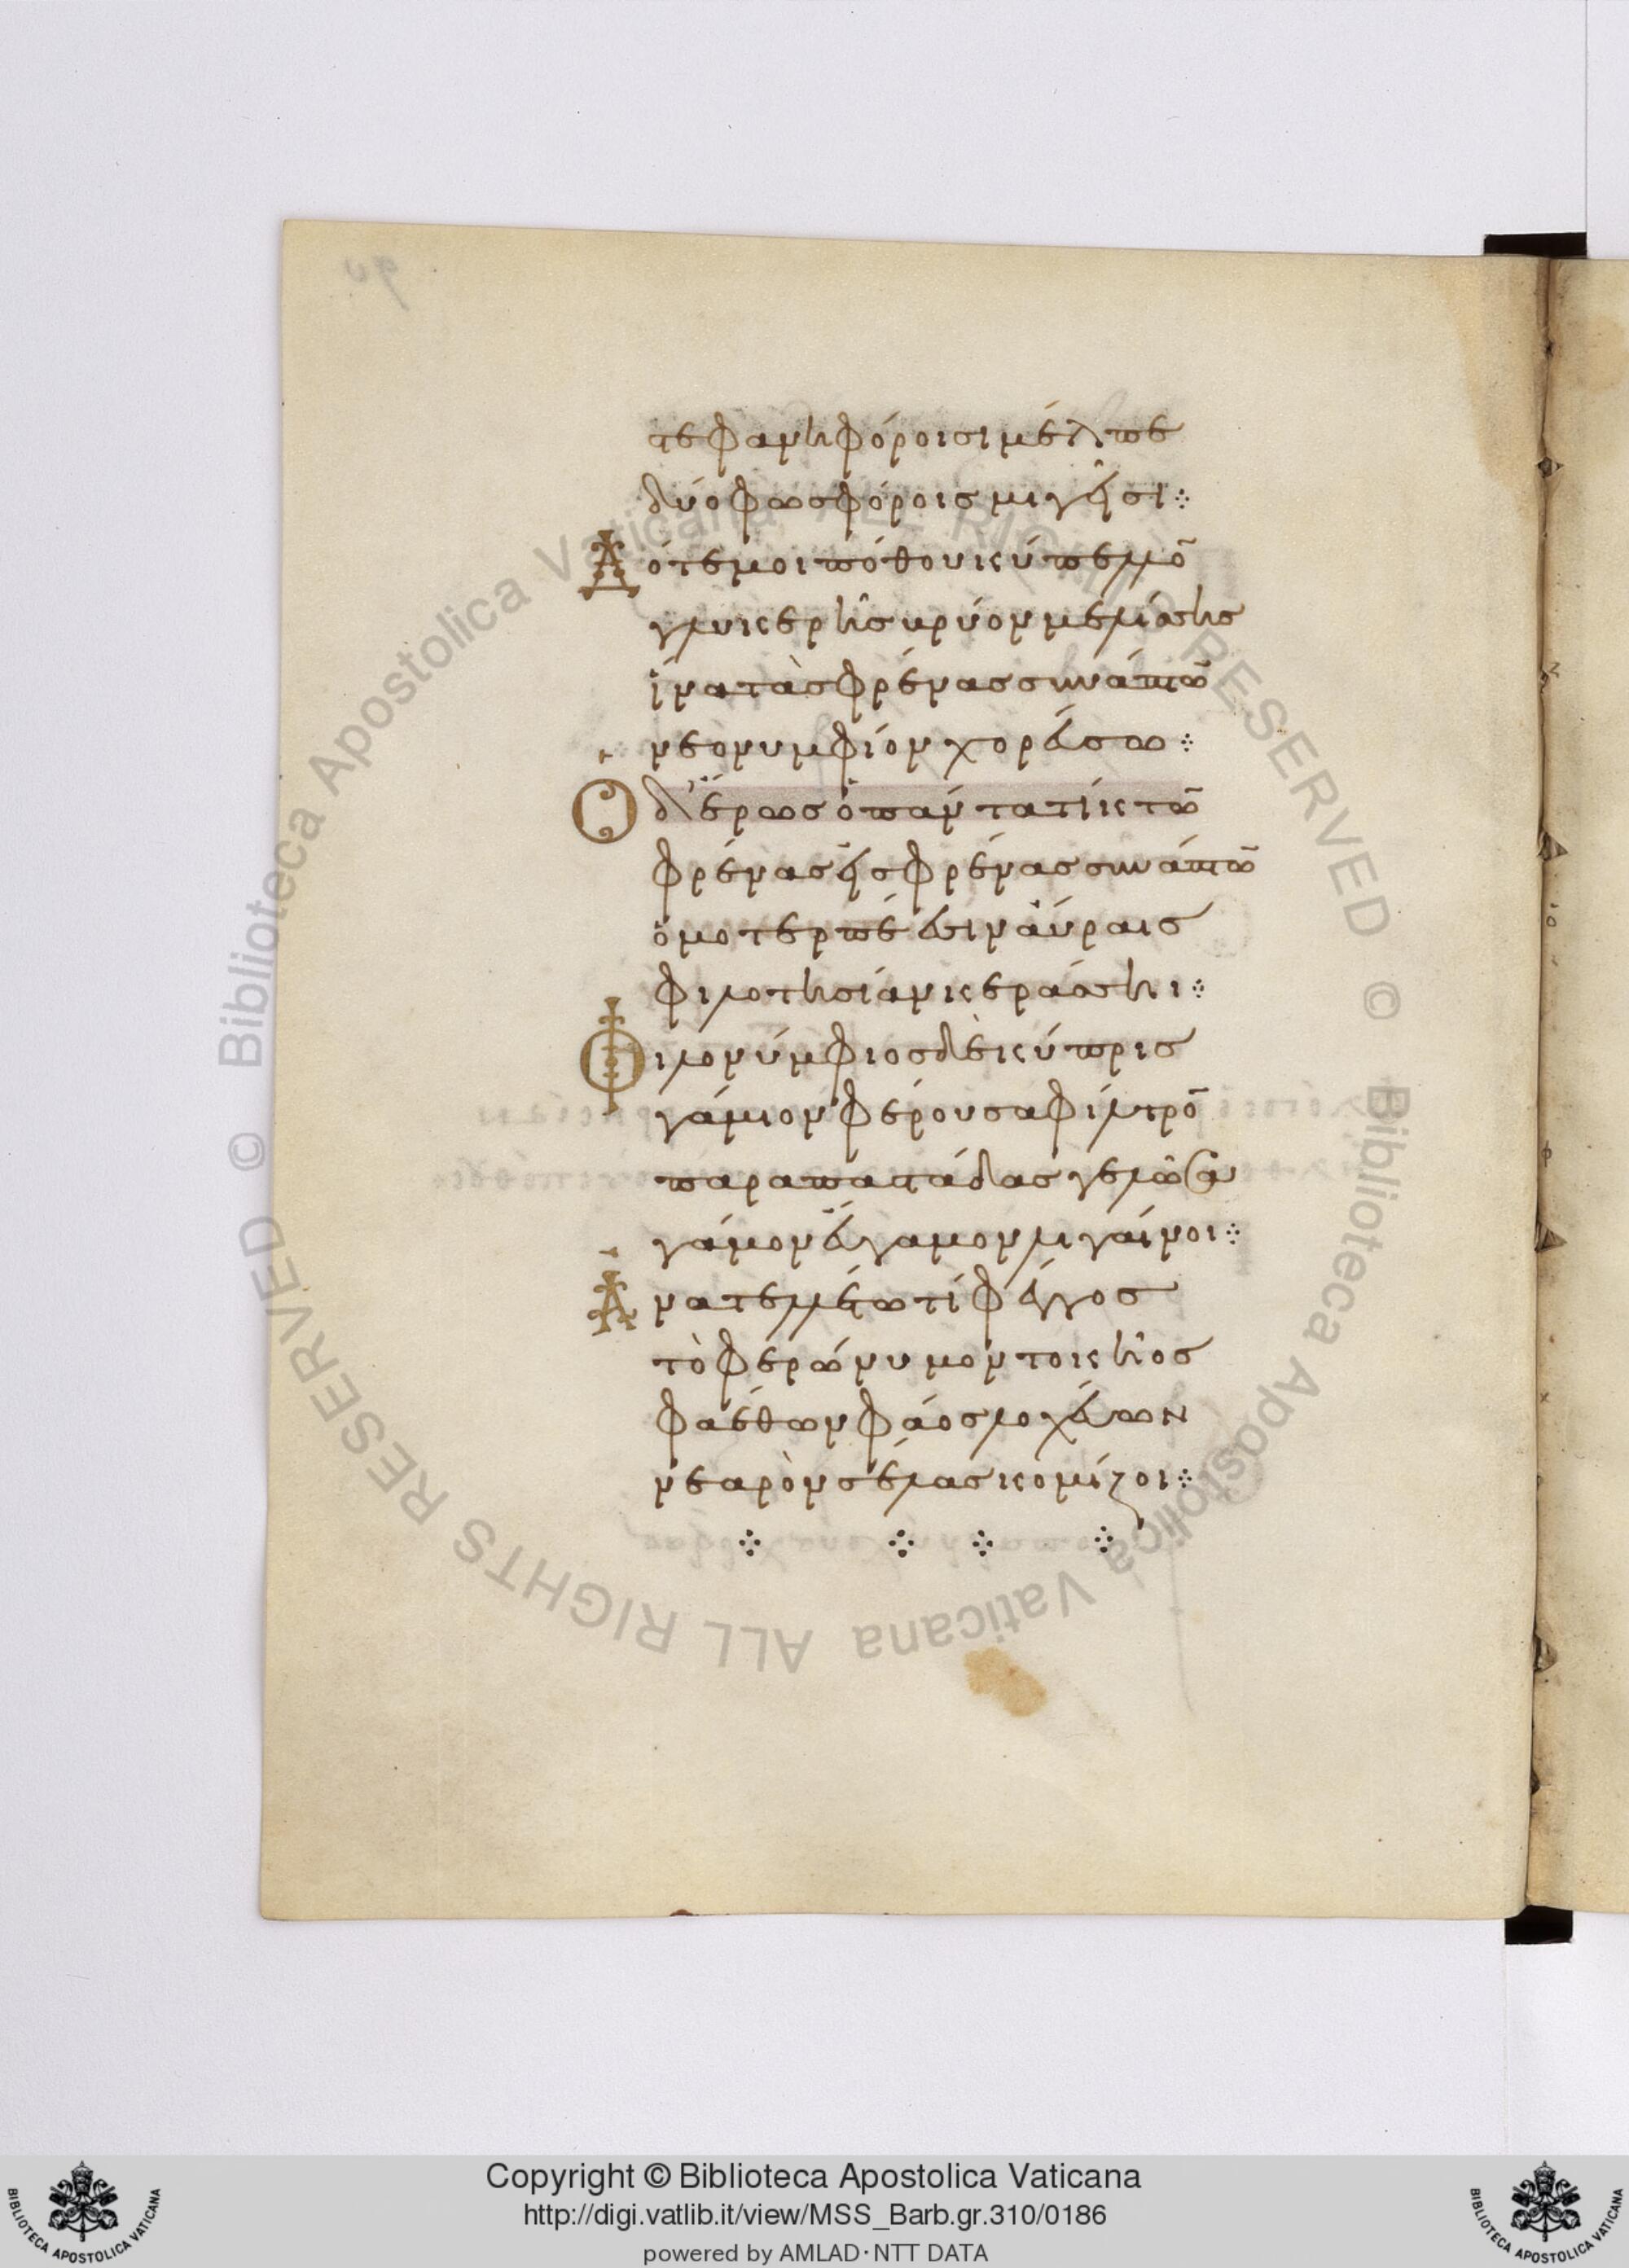 στεφανηφόροισι μέλπε
δύο φωσφόροις μιγεῖσι⁘
Δότε μοι πόθου κύπελλον
γλυκερῆς κρύον μελίσσης
ἵνα τὰς φρένας συνάπτων
νεονυμφίον χορεύσω⁘
Ὁ δ' ἔρως ὁ πάντα τίκτων
φρένας εἰς φρένας συνάπτων
ὁμοτερπέειν αὔραις
φιλοτησίαν κεράσσηι⁘
Φιλονύμφιος δὲ κύπρις
γάμιον φέρουσα φίλτρον
παρὰ παστάδας γελῶσα
γάμον εὔγαμον λιγαίνοι⁘
Ἀνατελλέτω τί φέγγος
τὸ φερώνυμον τοκῆος
φαέθων φάος λοχεύων
νεαρὸν σέλας κομίζοι⁘
⁘ ⁘ ⁘ ⁘
© Biblioteca Apostolica Vaticana ALL RIGHTS RESERVED © Biblioteca Apostolica Vaticana ALL RIGHTS RESERVED
Copyright © Biblioteca Apostolica Vaticana
http://digi.vatlib.it/view/MSS_Barb.gr.310/0186
powered by AMLAD·NTT DATA
BIBLIOTECA APOSTOLICA VATICANA
BIBLIOTECA APOSTOLICA VATICANA